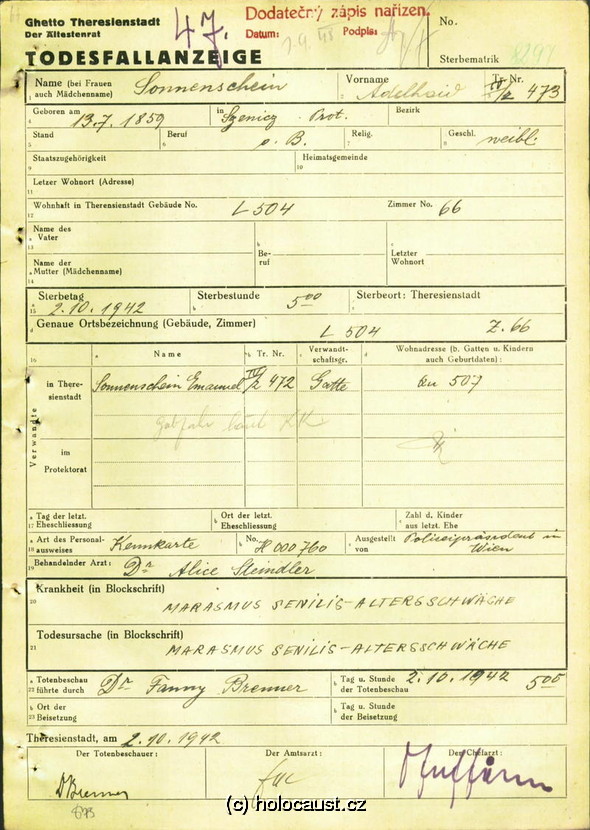 Ghetto Theresienstadt
Der Ältestenrat
47.
Dodatečný zápis nařízen.
Datum: Podpis:
No.
TODESFALLANZEIGE
Sterbematrik 8297
Name (bei Frauen auch Mädchenname) Sonnenschein Vorname Adelhaid Tr. Nr. IV/2 473
Geboren am 13.7. 1859 in Szenicz Prot. Bezirk
Stand Beruf o. B. Relig. Geschl. weibl.
Staatszugehörigkeit Heimatsgemeinde
Letzer Wohnort (Adresse)
Wohnhaft in Theresienstadt Gebäude No. L 504 Zimmer No. 66
Name des Vater Beruf Letzter Wohnort
Name der Mutter (Mädchenname)
Sterbetag 2.10.1942 Sterbestunde 5 00 Sterbeort: Theresienstadt
Genaue Ortsbezeichnung (Gebäude, Zimmer) L 504 Z. 66
Name Tr. Nr. Verwandtschaftsgr. Wohnadresse (b. Gatten u. Kindern auch Geburtdaten):
Verwandte
in Theresienstadt Sonnenschein Emanuel IV/2 472 Gatte 507
im Protektorat
Tag der letzt. Eheschliessung Ort der letzt. Eheschliessung Zahl d. Kinder aus letzt. Ehe
Art des Personalausweises Kennkarte No. H 000760 Ausgestellt von Polizeipräsident in Wien
Behandelnder Arzt: Dr Alice Steindler
Krankheit (in Blockschrift)
MARASMUS SENILIS-ALTERSSCHWÄCHE
Todesursache (in Blockschrift)
MARASMUS SENILIS-ALTERSSCHWÄCHE
Totenbeschau führte durch Dr Fanny Brenner Tag u. Stunde der Totenbeschau 2.10.1942 5 00
Ort der Beisetzung Tag u. Stunde der Beisetzung
Theresienstadt, am 2.10.1942
Der Totenbeschauer: Der Amtsarzt: Der Chefarzt:
Dr Brenner
(c) holocaust.cz